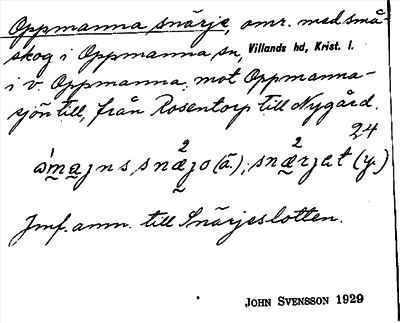 Oppmanna snärje, omr. med små-
skog i Oppmanna sn, Villands hd, Krist. l.
i v. Oppmanna, mot Oppmanna-
sjön till, från Rosentorp till Nygård.
24
2 2
snæjo (ä.); snærjet (y.)
Jmf. anm. till Snärjeslotten.
JOHN SVENSSON 1929